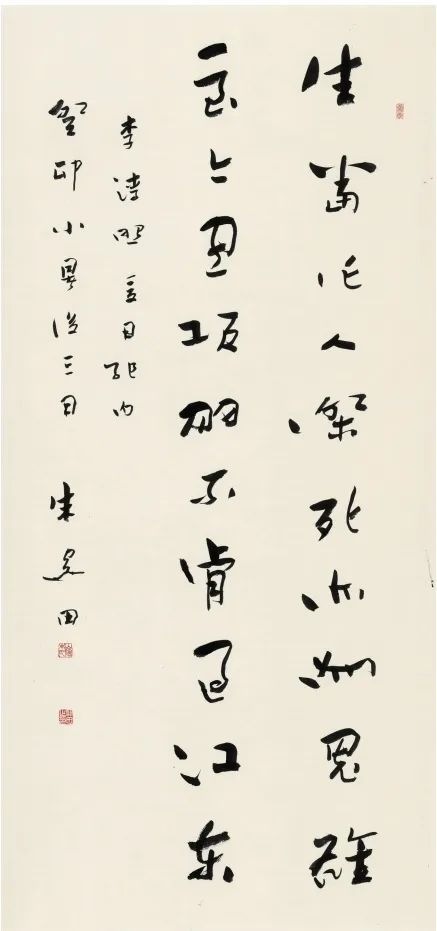 生當作人傑死亦為鬼雄
至今思項羽不肯過江東
李清照夏日絕句
卯小暑後三日 朱關田